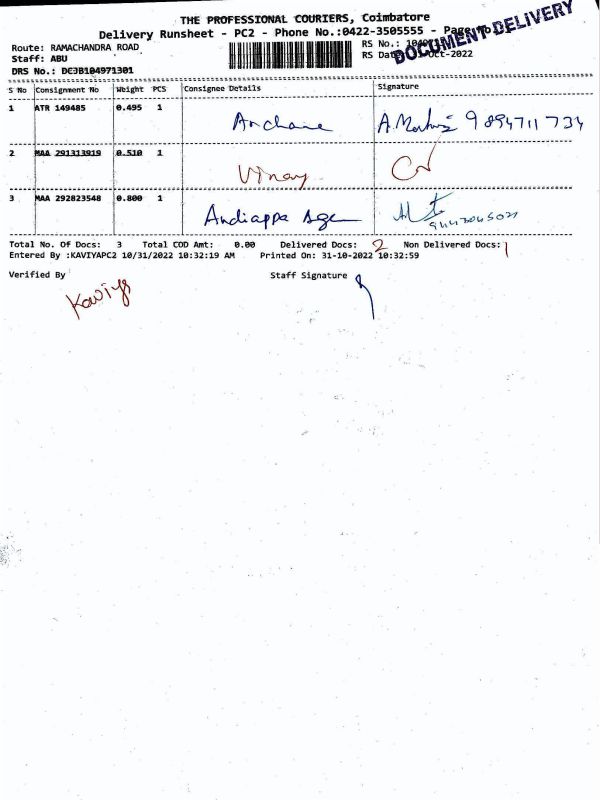 THE PROFESSIONAL COURIERS, Coimbatore
Delivery Runsheet - PC2 - Phone No.:0422-3505555 - Page No
DOCUMENT DELIVERY
Route: RAMACHANDRA ROAD
RS No.:
Staff: ABU
RS Date -Oct-2022
DRS No.: DC3B104971301
S No Consignment No Weight PCS Consignee Details Signature
1 ATR 149485 0.495 1 Archana 9894711734
2 MAA 291313919 0.510 1 Vinay
3 MAA 292823548 0.800 1 Andiappa
Total No. Of Docs: 3 Total COD Amt: 0.00 Delivered Docs: 2 Non Delivered Docs: 1
Entered By :KAVIYAPC2 10/31/2022 10:32:19 AM Printed On: 31-10-2022 10:32:59
Verified By Staff Signature
Kaviya